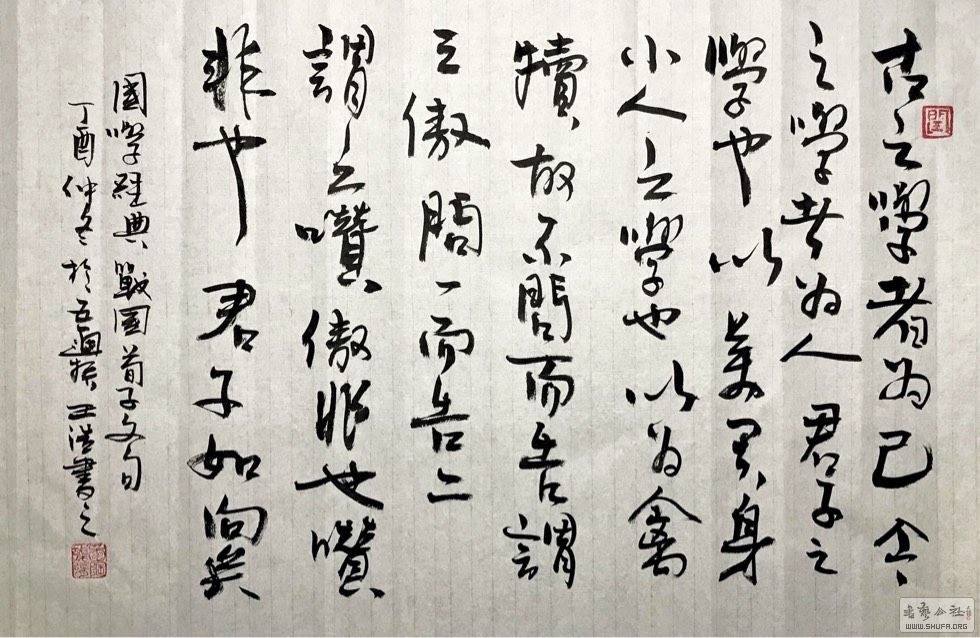 古之學者為己今
之學者為人君子之
學也以美其身
小人之學也以為禽
犢故不問而告謂
之傲問一而告二
謂之囋傲非也囋
非也君子如向矣
國學經典戰國荀子文句
丁酉仲冬於王浩書之
書藝公社
WWW.SHUFA.ORG